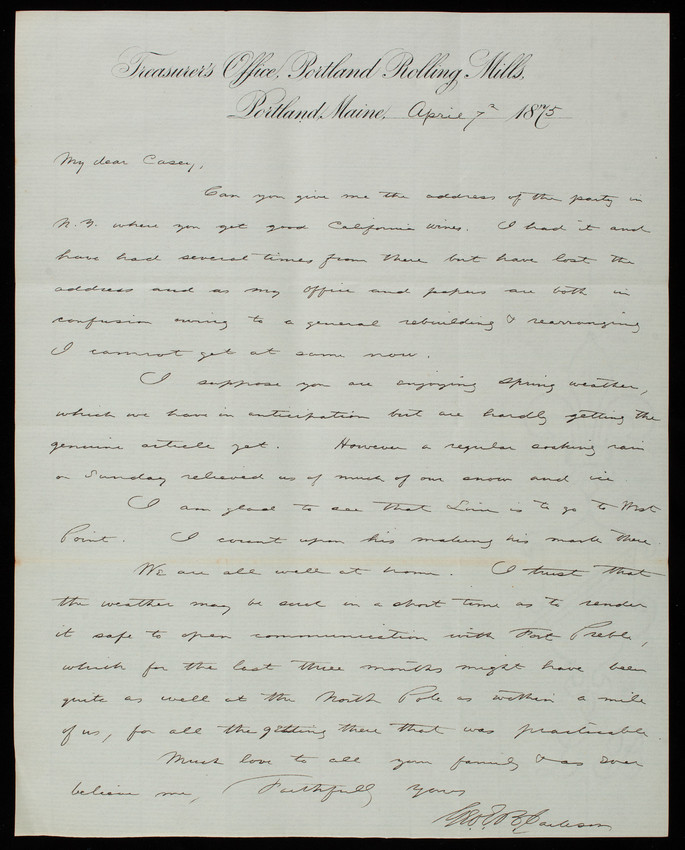 Treasurer's Office, Portland Rolling Mills,
Portland, Maine, April 7th 1875
My dear Casey,
Can you give me the address of the party in
N.Y. where you get good California wines. I had it and
have had several times from there but have lost the
address and as my office and papers are both in
confusion owing to a general rebuilding & rearranging
I cannot get at same now.
I suppose you are enjoying Spring weather,
which we have in anticipation but are hardly getting the
genuine article yet. However a regular soaking rain
on Sunday relieved us of much of our snow and ice
I am glad to see that is to go to West
Point. I count upon his making his mark there.
We are all well at home. I trust that
the weather may be such in a short time as to render
it safe to open communication with Fort Preble,
which for the last three months might have been
quite as well at the North Pole as within a mile
of us, for all the getting there that was practicable.
Much love to all your family & as ever
believe me, Faithfully Yours
Geo. E. B. Jackson